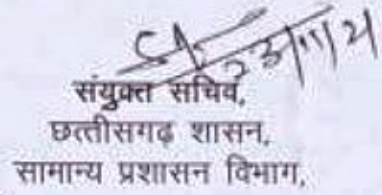 23/11/21
संयुक्त सचिव,
छत्तीसगढ़ शासन,
सामान्य प्रशासन विभाग,